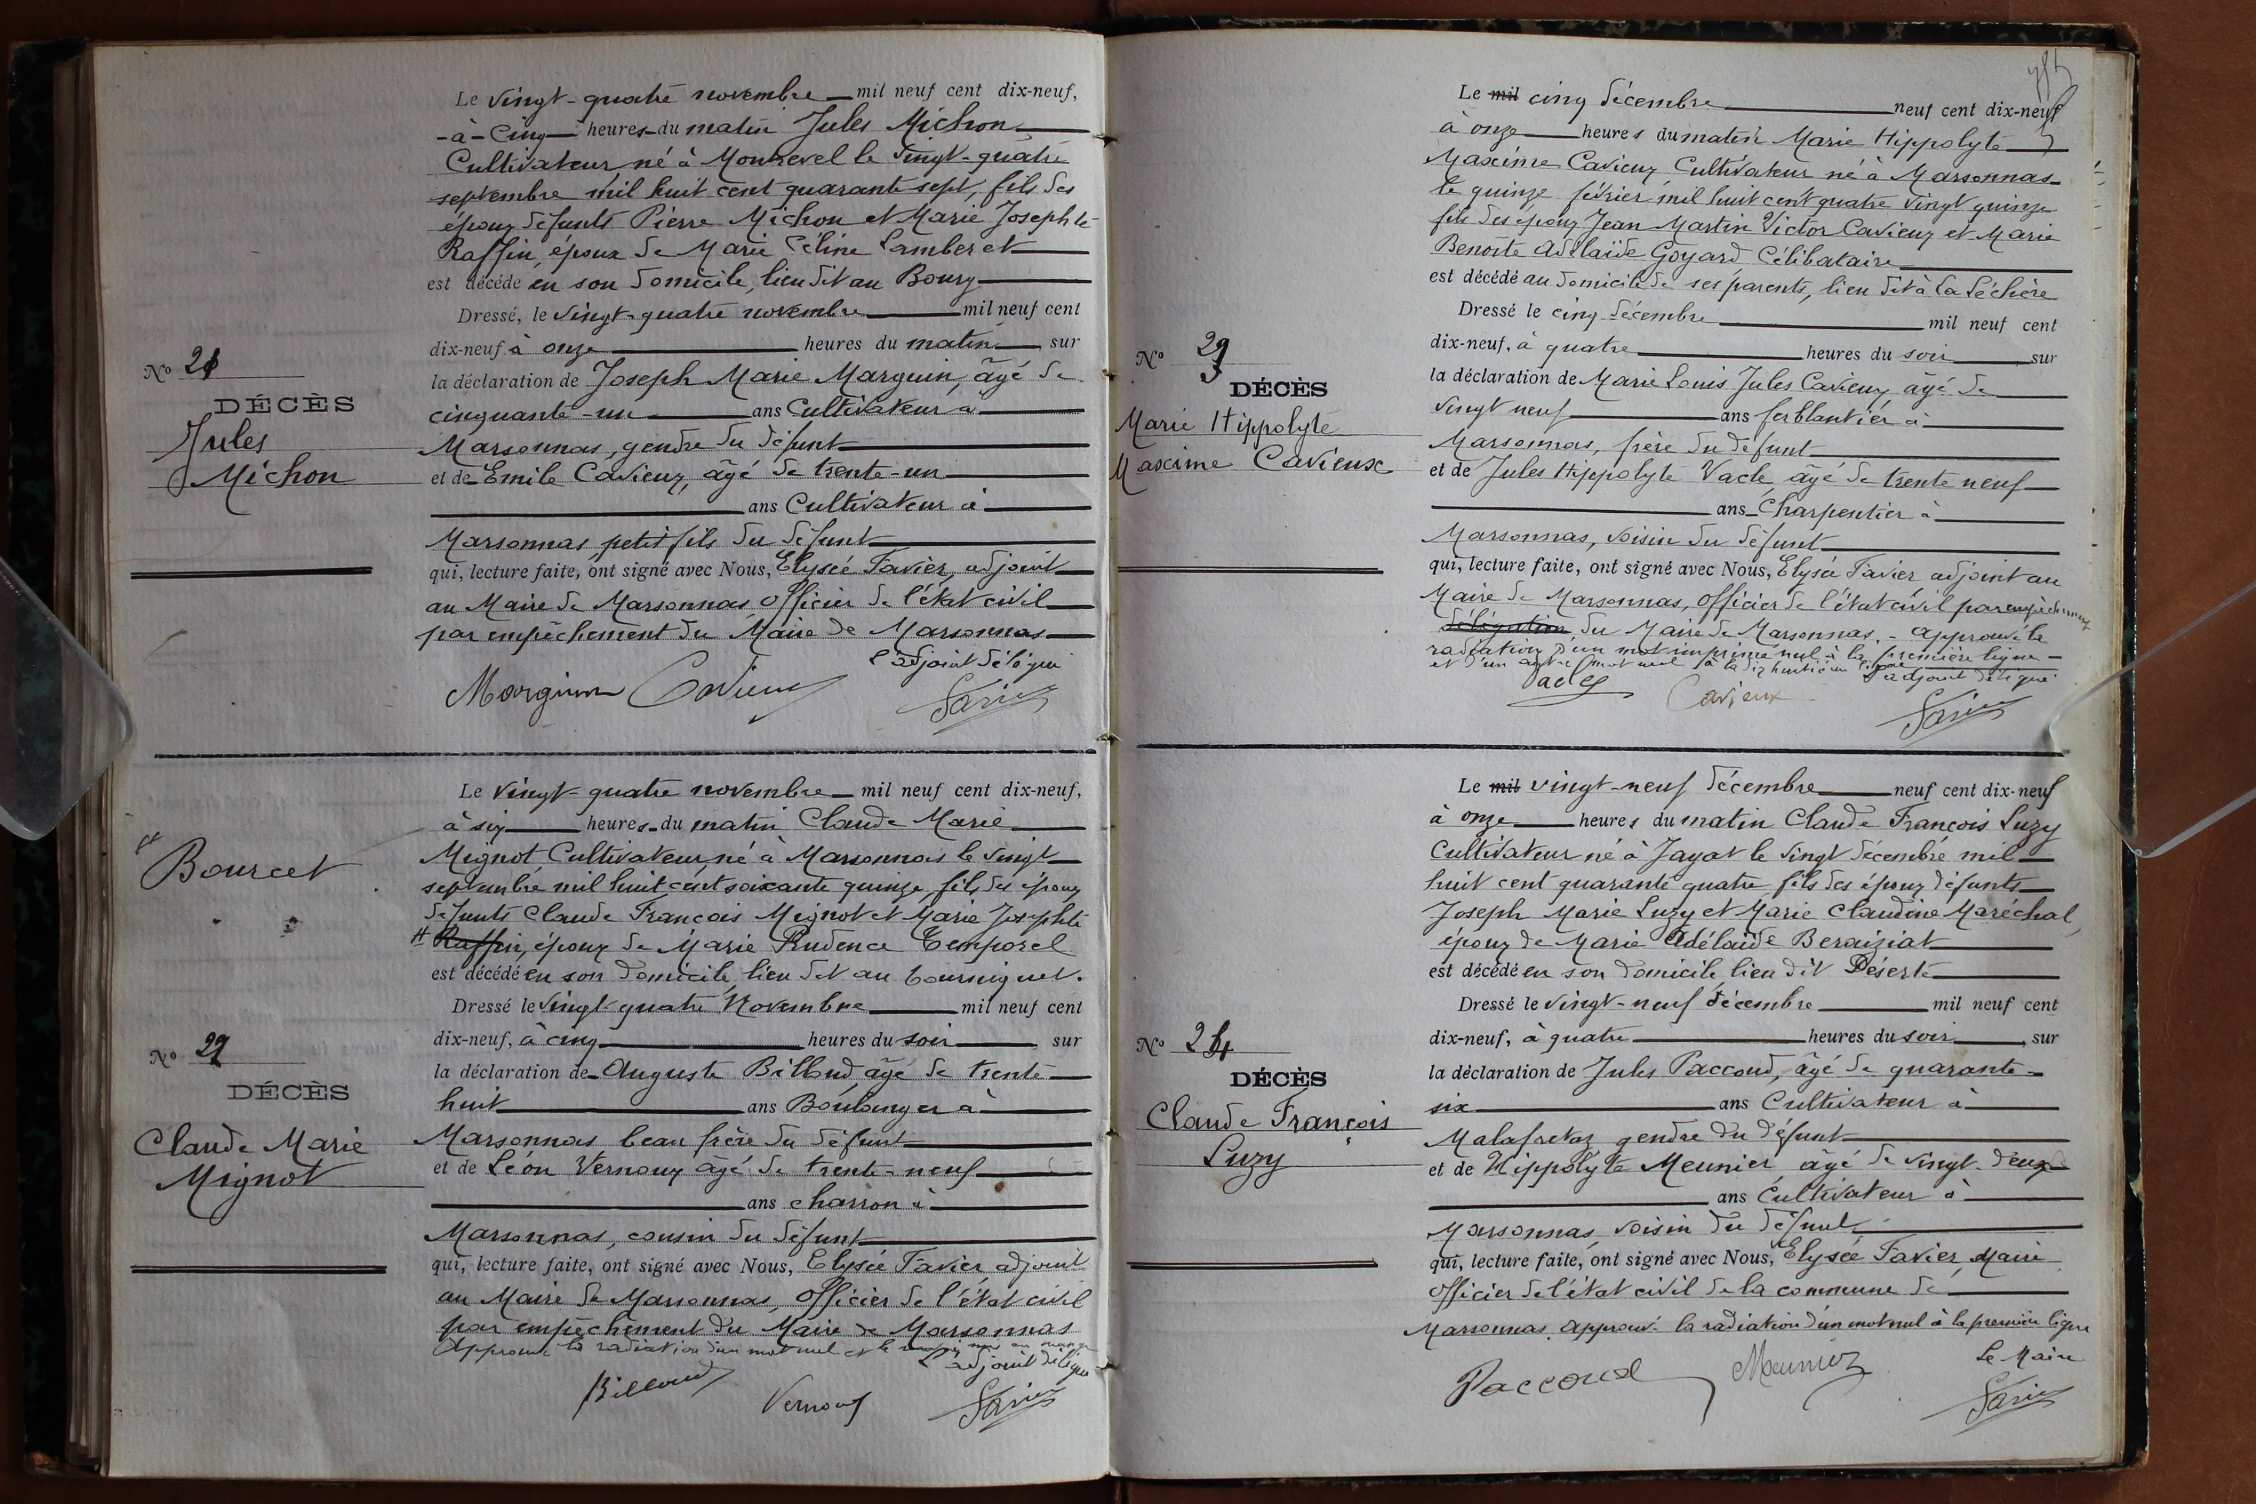 Le vingt-quatre novembre mil neuf cent dix-neuf,
-à-cinq heures du matin Jules Michon
Cultivateur, né à Montrevel le vingt-quatre
septembre mil huit cent quarante sept, fils des
époux défunts Pierre Michon et Marie Josephte
Raffin, époux de Marie Céline Lamberet
est décédé en son domicile, lieu dit au Bourg
Dressé, le vingt-quatre novembre mil neuf cent
dix-neuf à onze heures du matin sur
la déclaration de Joseph Marie Marguin, âgé de
cinquante-un ans Cultivateur à
Marsonnas, gendre du défunt
et de Emile Cavieux, âgé de trente-un
ans Cultivateur à
Marsonnas petit fils du défunt
qui, lecture faite, ont signé avec Nous, Elysée Favier, adjoint
au Maire de Marsonnas Officier de l'état civil
par empêchement du Maire de Marsonnas
l'adjoint délégué
Marguin Cavieux Favier
No 21
DÉCÈS
Jules
Michon
Le vingt-quatre novembre mil neuf cent dix-neuf,
à six heures du matin Claude Marie
Mignot Cultivateur, né à Marsonnas le vingt
septembre mil huit cent soixante quinze, fils des époux
défunts Claude François Mignot et Marie Josephte
# Raffin, époux de Marie Prudence Temporel
est décédé en son domicile, lieu dit au tourniquet.
Dressé le vingt-quatre Novembre mil neuf cent
dix-neuf, à cinq heures du soir sur
la déclaration de Auguste Billoud, âgé de trente
huit ans Boulanger à
Marsonnas beau frère du défunt
et de Léon Vernoux âgé de trente-neuf
ans charron à
Marsonnas, cousin du défunt
qui, lecture faite, ont signé avec Nous, Elysée Favier adjoint
au Maire de Marsonnas, Officier de l'état civil
par empêchement du Maire de Marsonnas
Approuvé la radiation d'un mot nul et le en marge
L'adjoint délégué
Billoud Vernoux Favier
# Bourcet
No 22
DÉCÈS
Claude Marie
Mignot
Le mil cinq décembre neuf cent dix-neuf
à onze heures du matin Marie Hippolyte
Maxime Cavieux Cultivateur né à Marsonnas
le quinze février mil huit cent quatre vingt quinze
fils des époux Jean Martin Victor Cavieux et Marie
Benoite Adélaïde Goyard Célibataire
est décédé au domicile de ses parents, lieu dit à La Léchère
Dressé le cinq décembre mil neuf cent
dix-neuf, à quatre heures du soir sur
la déclaration de Marie Louis Jules Cavieux âgé de
vingt neuf ans ferblantier à
Marsonnas, frère du défunt
et de Jules Hippolyte Vacle âgé de trente neuf
ans Charpentier à
Marsonnas, voisin du défunt
qui, lecture faite, ont signé avec Nous, Elysée Favier adjoint au
Maire de Marsonnas, Officier de l'état civil par empêchement
délégation du Maire de Marsonnas. - Approuvé la
radiation d'un mot imprimé nul à la première ligne -
et d'un autre mot nul à la dix huitième ligne L'adjoint délégué
Vacle Cavieux Favier
No 23
DÉCÈS
Marie Hippolyte
Maxime Cavieux
Le mil vingt-neuf décembre neuf cent dix-neuf
à onze heures du matin Claude François Luzy
Cultivateur né à Jayat le vingt décembre mil
huit cent quarante quatre fils des époux défunts
Joseph Marie Luzy et Marie Claudine Maréchal,
époux de Marie Adélaïde Beraiziat
est décédé en son domicile, lieu dit Déserte
Dressé le vingt-neuf décembre mil neuf cent
dix-neuf, à quatre heures du soir, sur
la déclaration de Jules Paccoud, âgé de quarante-
six ans Cultivateur à
Malafretaz gendre du défunt
et de Hippolyte Meunier âgé de vingt-deux
ans Cultivateur à
Marsonnas, voisin du défunt
qui, lecture faite, ont signé avec Nous, Elysée Favier, Maire
Officier de l'état civil de la commune de
Marsonnas. Approuvé la radiation d'un mot nul à la première ligne
Le Maire
Paccoud Meunier Favier
No 24
DÉCÈS
Claude François
Luzy